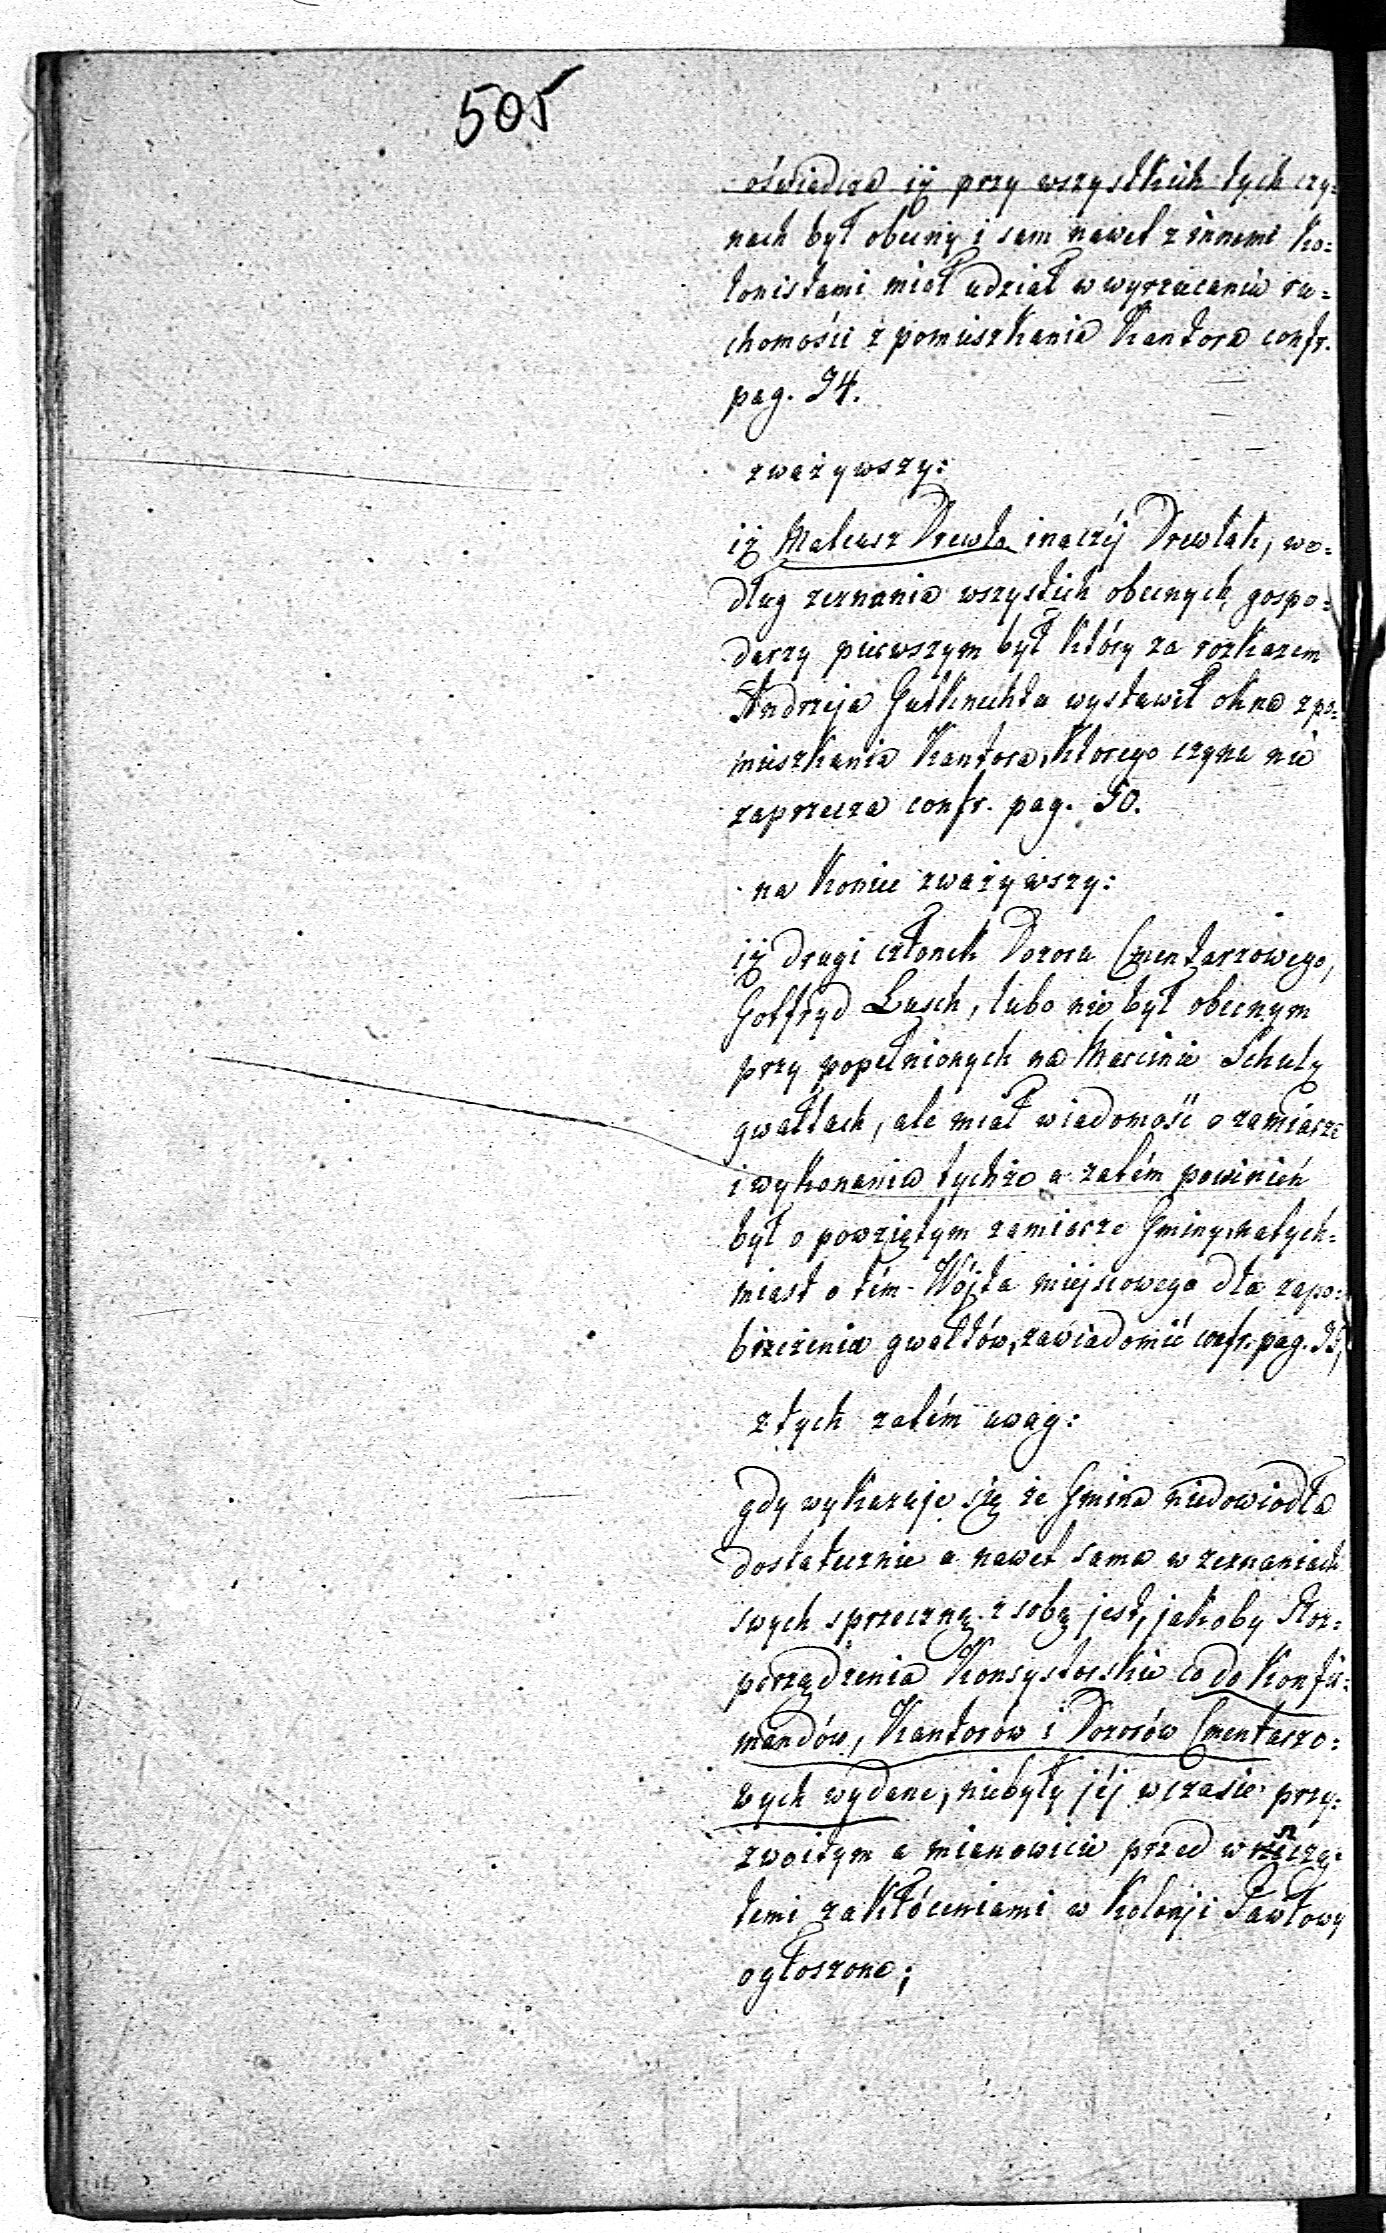 505
oświadcza iż przy wszystkich tych czy=
nach był obecny i sam nawet z innemi ko=
lonistami miał udział w wyrzucaniu ru=
chomości z pomieszkania Kantora confr.
pag. 94.
zważywszy:
iż Mateusz Drewla inaczéj Drewlak, we=
dług zeznania wszystkich obecnych gospo=
darzy pierwszym był który za rozkazem
Andrzeja Gutknechta wystawił okna z po=
mieszkania Kantora, którego czynu nie
zaprzecza confr. pag. 50.
na koniec zważywszy:
iż drugi członek Dozoru Cmentarzowego,
Gotfryd Busch, lubo nie był obecnym
przy popełnionych na Marcinie Schulz
gwałtach, ale miał wiadomość o zamiarze
i wykonaniu tychże a zatém powinien
był o powziętym zamiarze Gminy, natych=
miast o tém Wójta miejscowego dla zapo=
bieżenia gwałtów, zawiadomić confr. pag. 95,
z tych zatém uwag:
gdy wykazuje się że Gmina niedowiodła
dostatecznie a nawet sama w zeznaniach
swych sprzeczną z sobą jest, jakoby Roz=
porządzenia Konsystorskie co do Konfir=
mandów, Kantorów i Dozorów Cmentarzo=
wych wydane, niebyły jéj w czasie przy=
zwoitym a mianowicie przed wszczę=
temi zakłóceniami w Kolonji Pawłowy
ogłoszone;